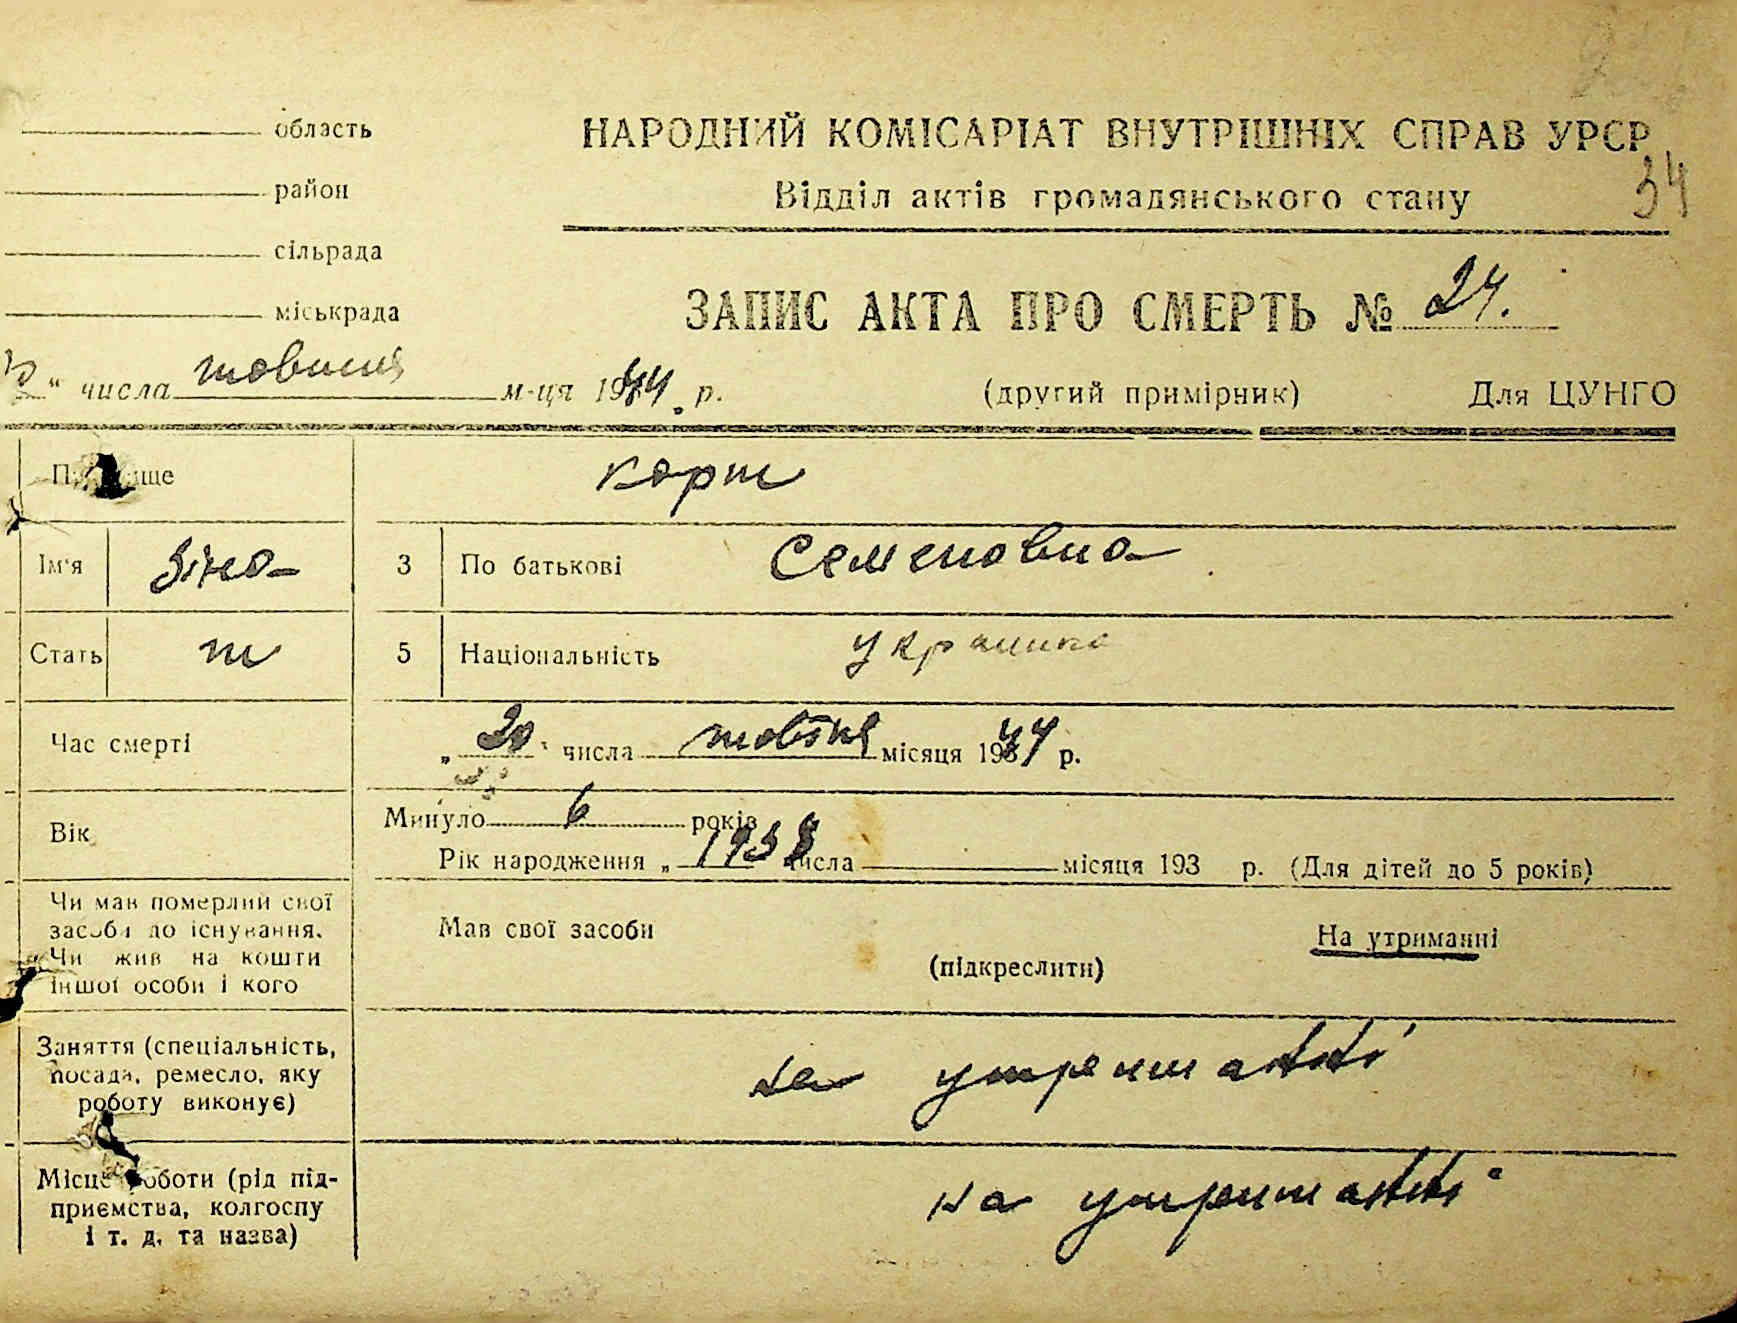 область
район
сільрада
міськрада
НАРОДНИЙ КОМІСАРІАТ ВНУТРІШНІХ СПРАВ УРСР
Відділ актів громадянського стану
34
ЗАПИС АКТА ПРО СМЕРТЬ № 24.
“ числа жовтня м-ця 1944 р.
(другий примірник) Для ЦУНГО
Прізвище Корж
Ім'я Зіна 3 По батькові Семеновна
Стать ж 5 Національність українка
Час смерті „ 20 “ числа жовтня місяця 1944 р.
Вік Минуло 6 років
Рік народження „ 1938 числа місяця 193 р. (Для дітей до 5 років)
Чи мав померлий свої
засоби до існування.
Чи жив на кошти
іншої особи і кого
Мав свої засоби
(підкреслити)
На утриманні
Заняття (спеціальність,
посада, ремесло, яку
роботу виконує)
на утриманні
Місце роботи (рід під-
приємства, колгоспу
і т. д. та назва)
на утриманні